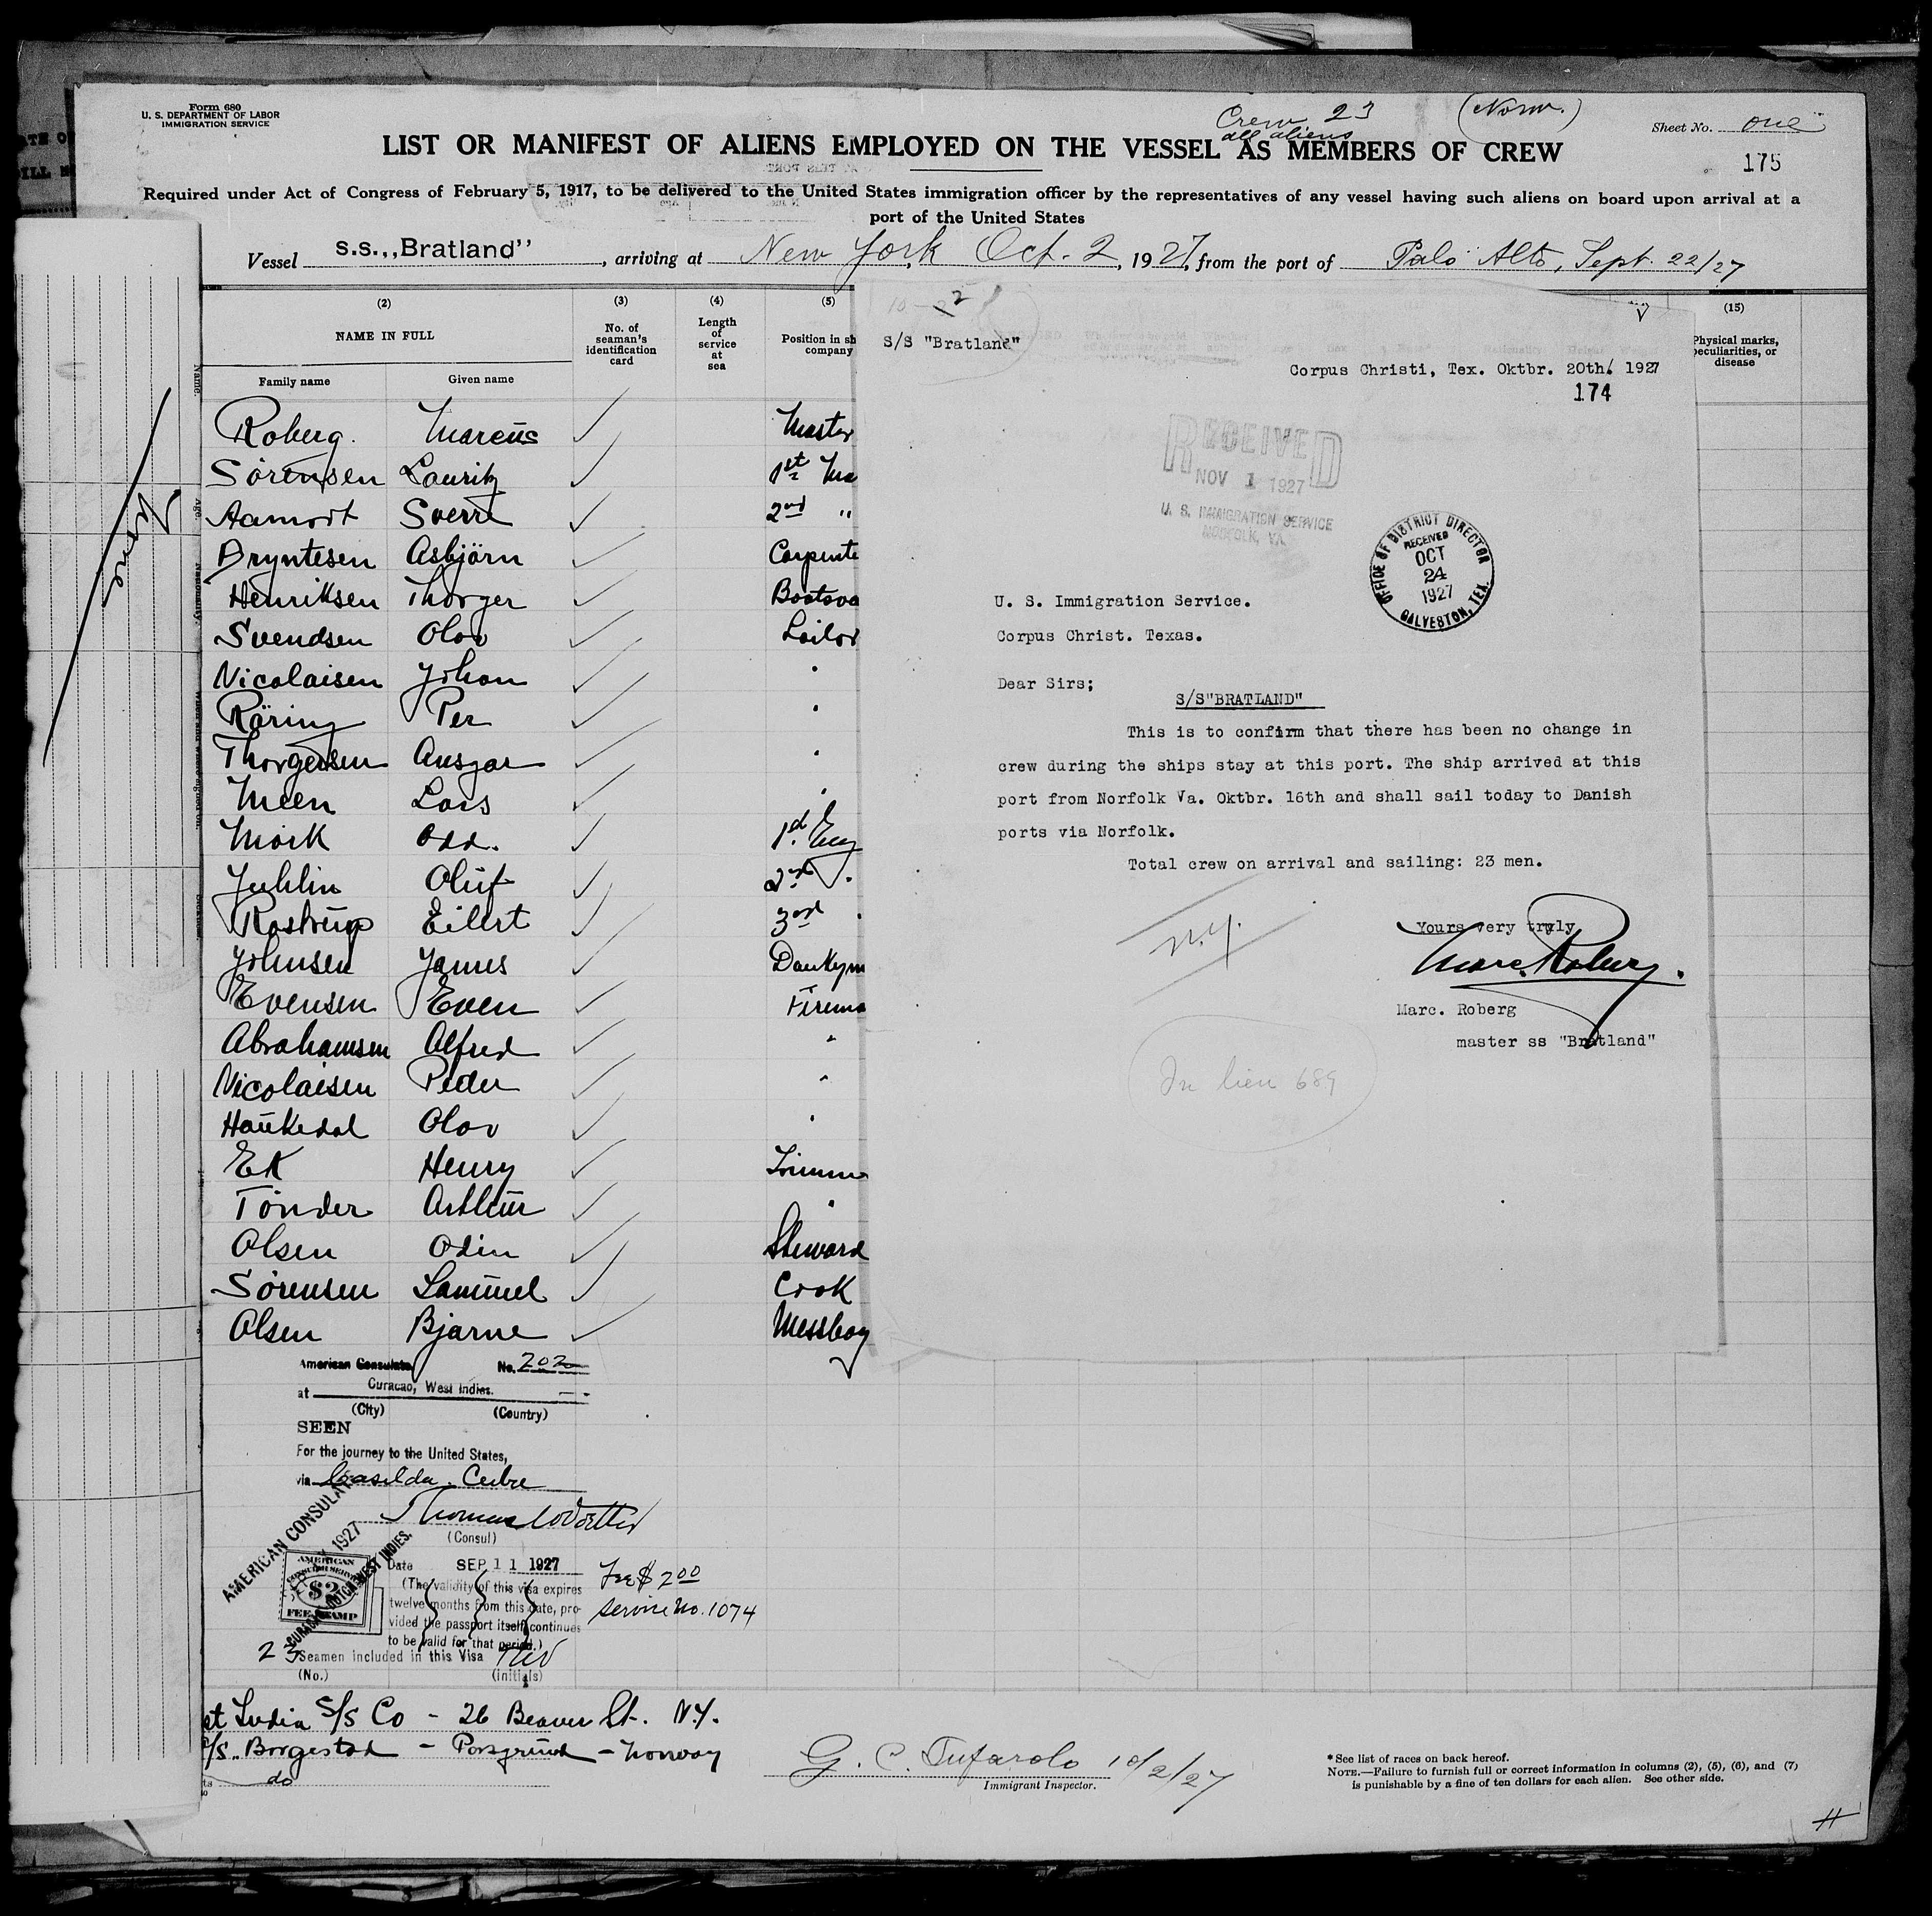 Form 680
U. S. DEPARTMENT OF LABOR
IMMIGRATION SERVICE
Crew 23 (Norw.)
all aliens
Sheet No. one
LIST OR MANIFEST OF ALIENS EMPLOYED ON THE VESSEL AS MEMBERS OF CREW
175
Required under Act of Congress of February 5, 1917, to be delivered to the United States immigration officer by the representatives of any vessel having such aliens on board upon arrival at a
port of the United States
Vessel s.s.,,Bratland'', arriving at New York, Oct. 2, 1927, from the port of Palo Alto, Sept. 22/27
(2) (3) (4) (5) (15)
NAME IN FULL
Family name Given name
No. of seaman's identification card
Length of service at sea
Position in sh
company
Physical marks, peculiarities, or disease
Roberg. Marcus Master
Sörensen Lauritz 1st Ma
Aamodt Sverre 2nd "
Bryntesen Asbjörn Carpente
Henriksen Thorger Boatswa
Svendsen Olav Sailor
Nicolaisen Johan "
Röring Per "
Thorgersen Ansgar "
Meen Lars "
Mörk Odd. 1st Eng
Juhlin Oluf 2nd "
Rostrup Eilert 3rd "
Johnsen James Donkym
Evensen Even Firema
Abrahamsen Alfred "
Nicolaisen Peder "
Haukedal Olav "
Ek Henry Trimme
Tönder Arthur "
Olsen Odin Steward
Sörensen Samuel Cook
Olsen Bjarne Messboy
S/S "Bratland"
Corpus Christi, Tex. Oktbr. 20th. 1927
174
RECEIVED
NOV 1 1927
U. S. IMMIGRATION SERVICE
NORFOLK, VA.
OFFICE OF DISTRICT DIRECTOR
RECEIVED
OCT
24
1927
GALVESTON, TEX.
U. S. Immigration Service.
Corpus Christ. Texas.
Dear Sirs;
S/S"BRATLAND"
This is to confirm that there has been no change in
crew during the ships stay at this port. The ship arrived at this
port from Norfolk Va. Oktbr. 16th and shall sail today to Danish
ports via Norfolk.
Total crew on arrival and sailing: 23 men.
N.Y.
Yours very truly
Marc. Roberg.
Marc. Roberg
master ss "Bratland"
In lieu 689
American Consulate No. 202
at Curacao, West Indies.
(City) (Country)
SEEN
For the journey to the United States,
via Casilda, Cuba
(Consul)
AMERICAN CONSULATE
1927
Date SEP 11 1927
(The validity of this visa expires
twelve months from this date, pro-
vided the passport itself continues
to be valid for that period.)
AMERICAN
CONSULAR SERVICE
$2
FEE STAMP
Fee $2.00
Service No. 1074
23 Seamen included in this Visa
(No.) (initials)
India S/S Co - 26 Beaver St. N.Y.
Borgestad - Porsgrund - Norway
do
G. C. Tufarolo 10/2/27
Immigrant Inspector.
* See list of races on back hereof.
NOTE.—Failure to furnish full or correct information in columns (2), (5), (6), and (7)
is punishable by a fine of ten dollars for each alien. See other side.